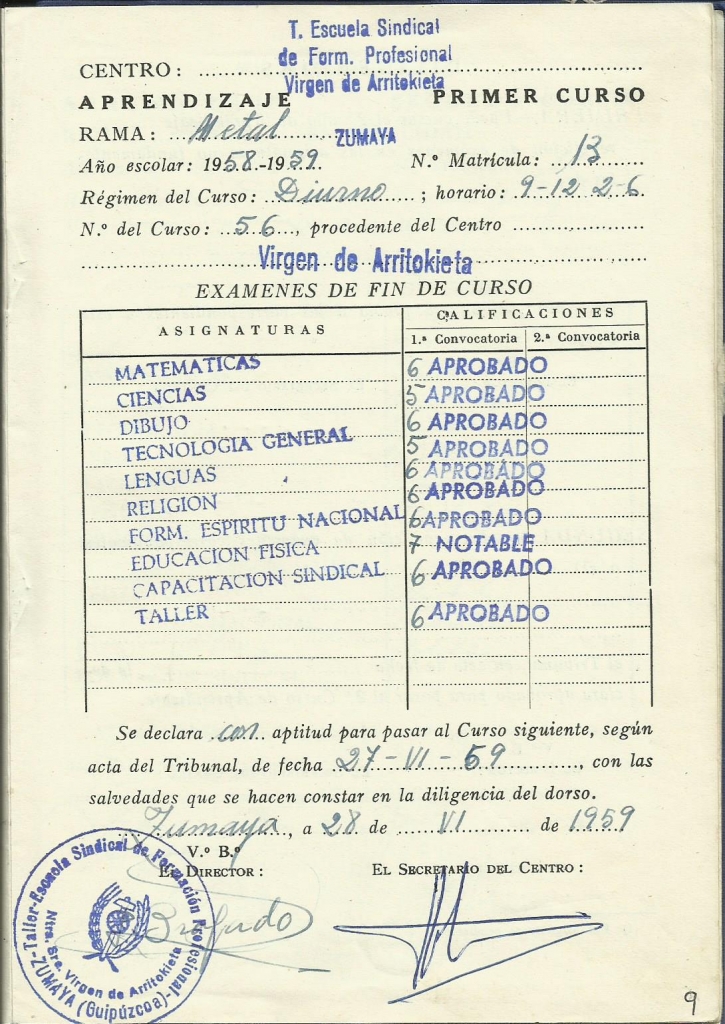 T. Escuela Sindical
de Form. Profesional
CENTRO: Virgen de Arritokieta
APRENDIZAJE PRIMER CURSO
RAMA: Metal ZUMAYA
Año escolar: 1958-1959 N.º Matrícula: 13
Régimen del Curso: Diurno; horario: 9-12 2-6
N.º del Curso: 56, procedente del Centro
Virgen de Arritokieta
EXAMENES DE FIN DE CURSO
ASIGNATURAS CALIFICACIONES
1.ª Convocatoria 2.ª Convocatoria
MATEMATICAS 6 APROBADO
CIENCIAS 5 APROBADO
DIBUJO 6 APROBADO
TECNOLOGIA GENERAL 5 APROBADO
LENGUAS 6 APROBADO
RELIGION 6 APROBADO
FORM. ESPIRITU NACIONAL 6 APROBADO
EDUCACION FISICA 7 NOTABLE
CAPACITACION SINDICAL 6 APROBADO
TALLER 6 APROBADO
Se declara con aptitud para pasar al Curso siguiente, según
acta del Tribunal, de fecha 27-VI-59, con las
salvedades que se hacen constar en la diligencia del dorso.
Zumaya, a 28 de VI de 1959
V.º B.º
EL DIRECTOR: EL SECRETARIO DEL CENTRO:
Taller-Escuela Sindical de Formación Profesional
Ntra. Sra. Virgen de Arritokieta
-ZUMAYA (Guipúzcoa)-
9